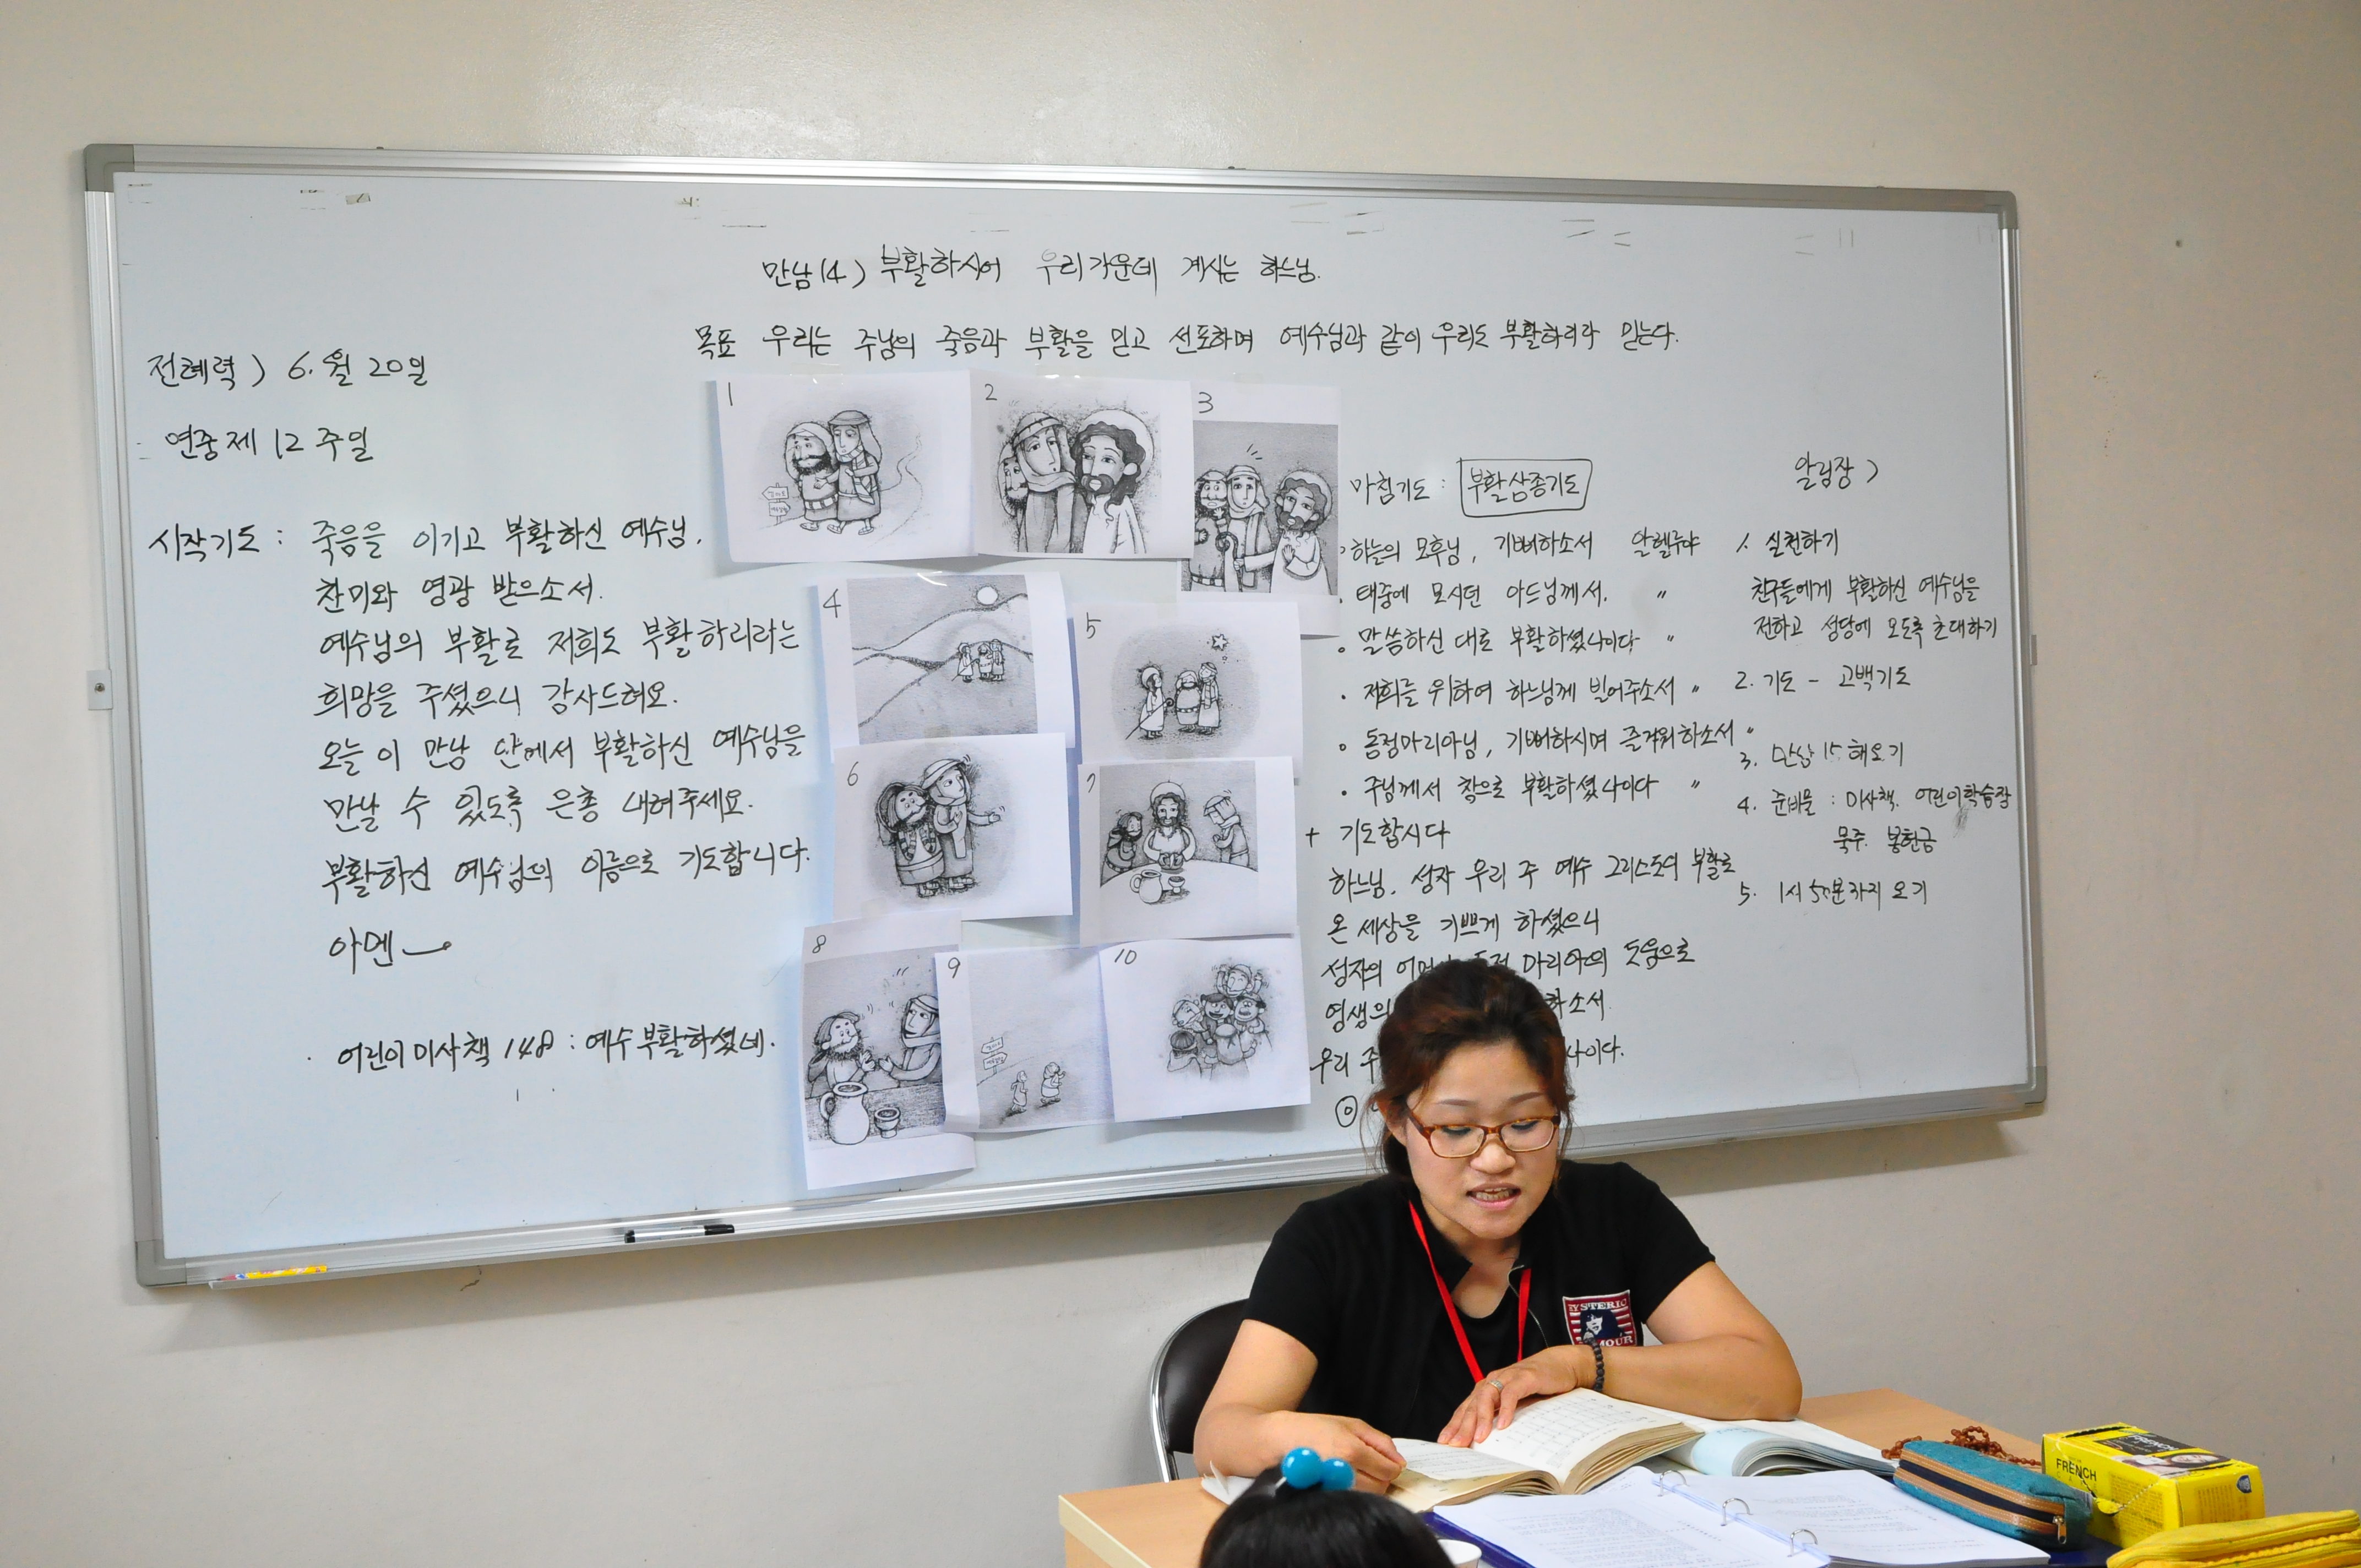 만남14) 부활하시어 우리 가운데 계시는 하느님.
목표 우리는 주님의 죽음과 부활을 믿고 선포하며 예수님과 같이 우리도 부활하리라 믿는다.
전례력) 6.월 20일
연중 제 12 주일
시작기도 : 죽음을 이기고 부활하신 예수님,
찬미와 영광 받으소서.
예수님의 부활로 저희도 부활하리라는
희망을 주셨으니 감사드려요.
오늘 이 만남 안에서 부활하신 예수님을
만날 수 있도록 은총 내려주세요.
부활하신 예수님의 이름으로 기도합니다.
아멘
어린이 미사책 148 : 예수 부활하셨네.
1
2
3
4
5
6
7
8
9
10
마침기도 : 부활삼종기도
하늘의 모후님, 기뻐하소서 알렐루야
태중에 모시던 아드님께서. 〃
말씀하신 대로 부활하셨나이다 〃
저희를 위하여 하느님께 빌어주소서 〃
동정마리아님, 기뻐하시며 즐거워하소서 〃
주님께서 참으로 부활하셨나이다 〃
+ 기도합시다
하느님. 성자 우리 주 예수 그리스도의 부활로
온 세상을 기쁘게 하셨으니
성자의 마리아의 도움으로
영생의 하소서.
우리 주 나이다.
알림장)
1. 실천하기
친구들에게 부활하신 예수님을
전하고 성당에 오도록 초대하기
2. 기도 - 고백기도
3. 만남 15 해오기
4. 준비물 : 미사책. 어린이학습장
묵주. 봉헌금
5. 1시 50분까지 오기
FRENCH